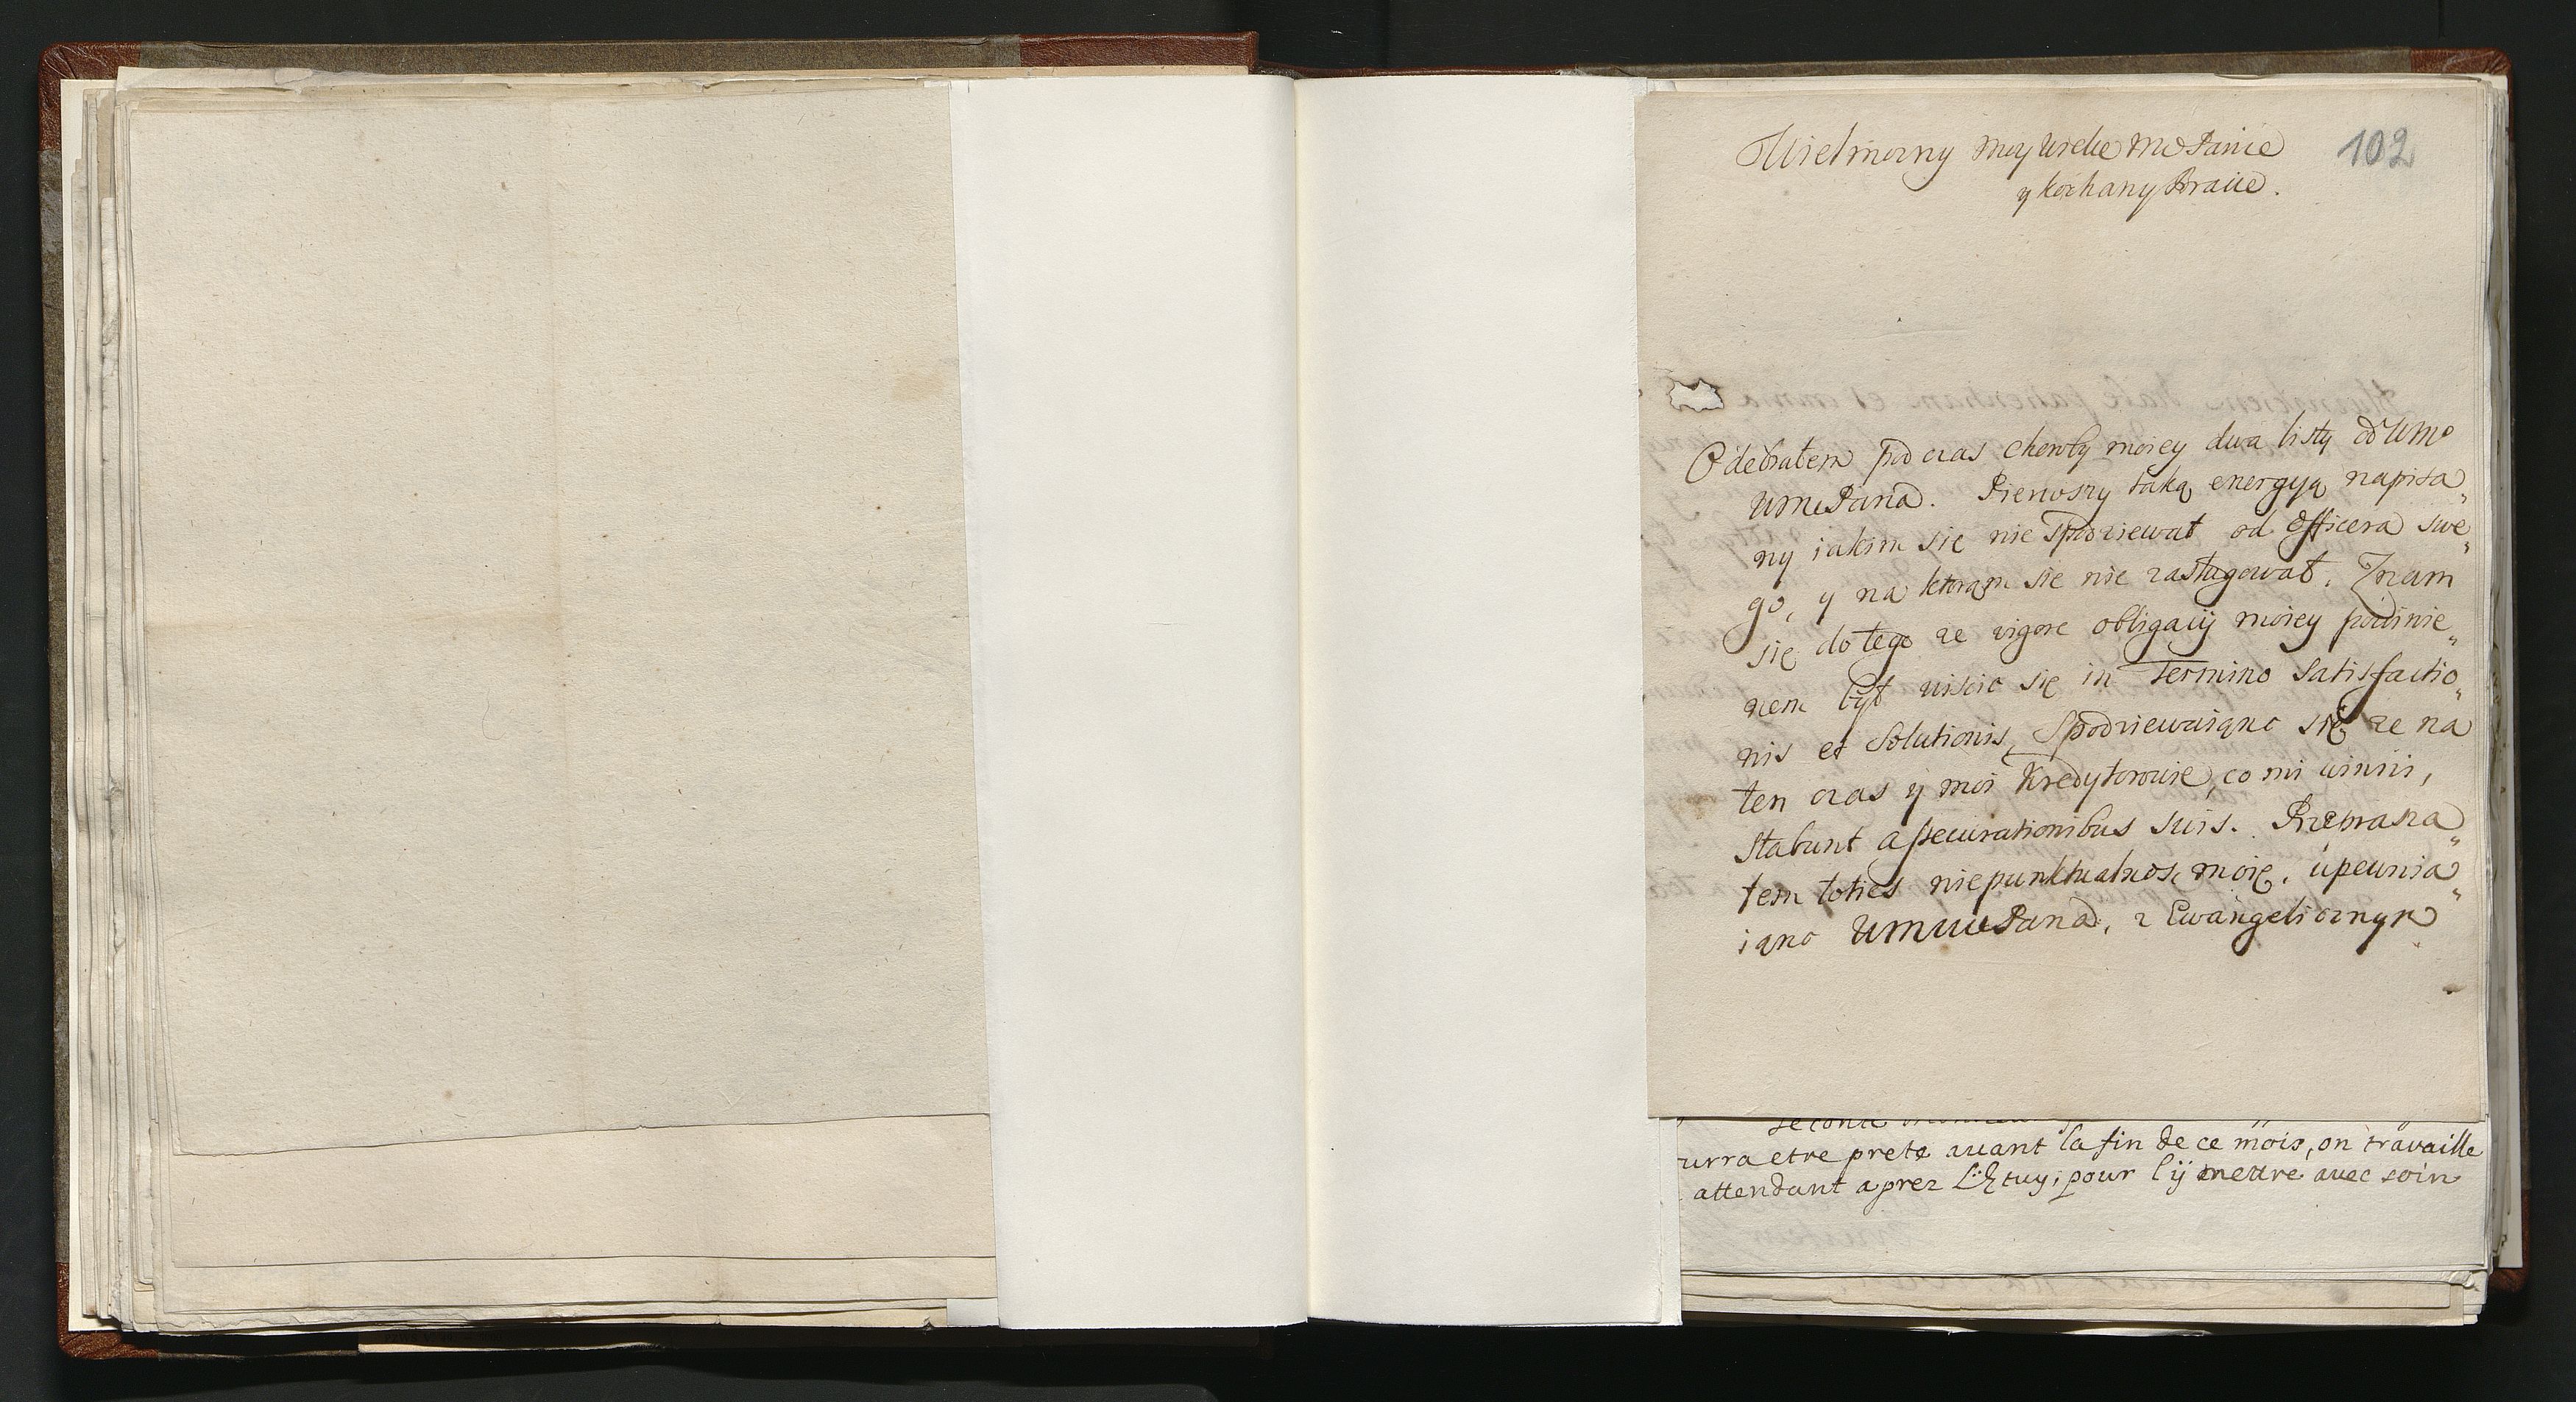 102
Wielmozny moy wielce Mo Panie
y kochany Bracie.
Odebrałem pod czas choroby moiey dwa listy od WMo
WMePana. Pierwszy taką energyą napisa„
ny iakim się nie spodziewał od officera swe„
go, y na ktorąm się nie zasługował. Znam
się do tego ze vigore obligacij moiey powinie„
nem był uiscic się in Termino Satisfactio„
nis et Solutionis, Spodziewaiąnc się ze na
ten czas y moi Kredytorowie, co mi winni,
stabunt assecurationibus suis. Przeprasza„
łem toties niepunktualnosc moię, upewnia„
iąnc WMMePana, z Ewangelicznym
urra etre prete auant la fin de ce mois, on travaille
attendant aprez L'Etuy; pour l'ij mettre avec soin